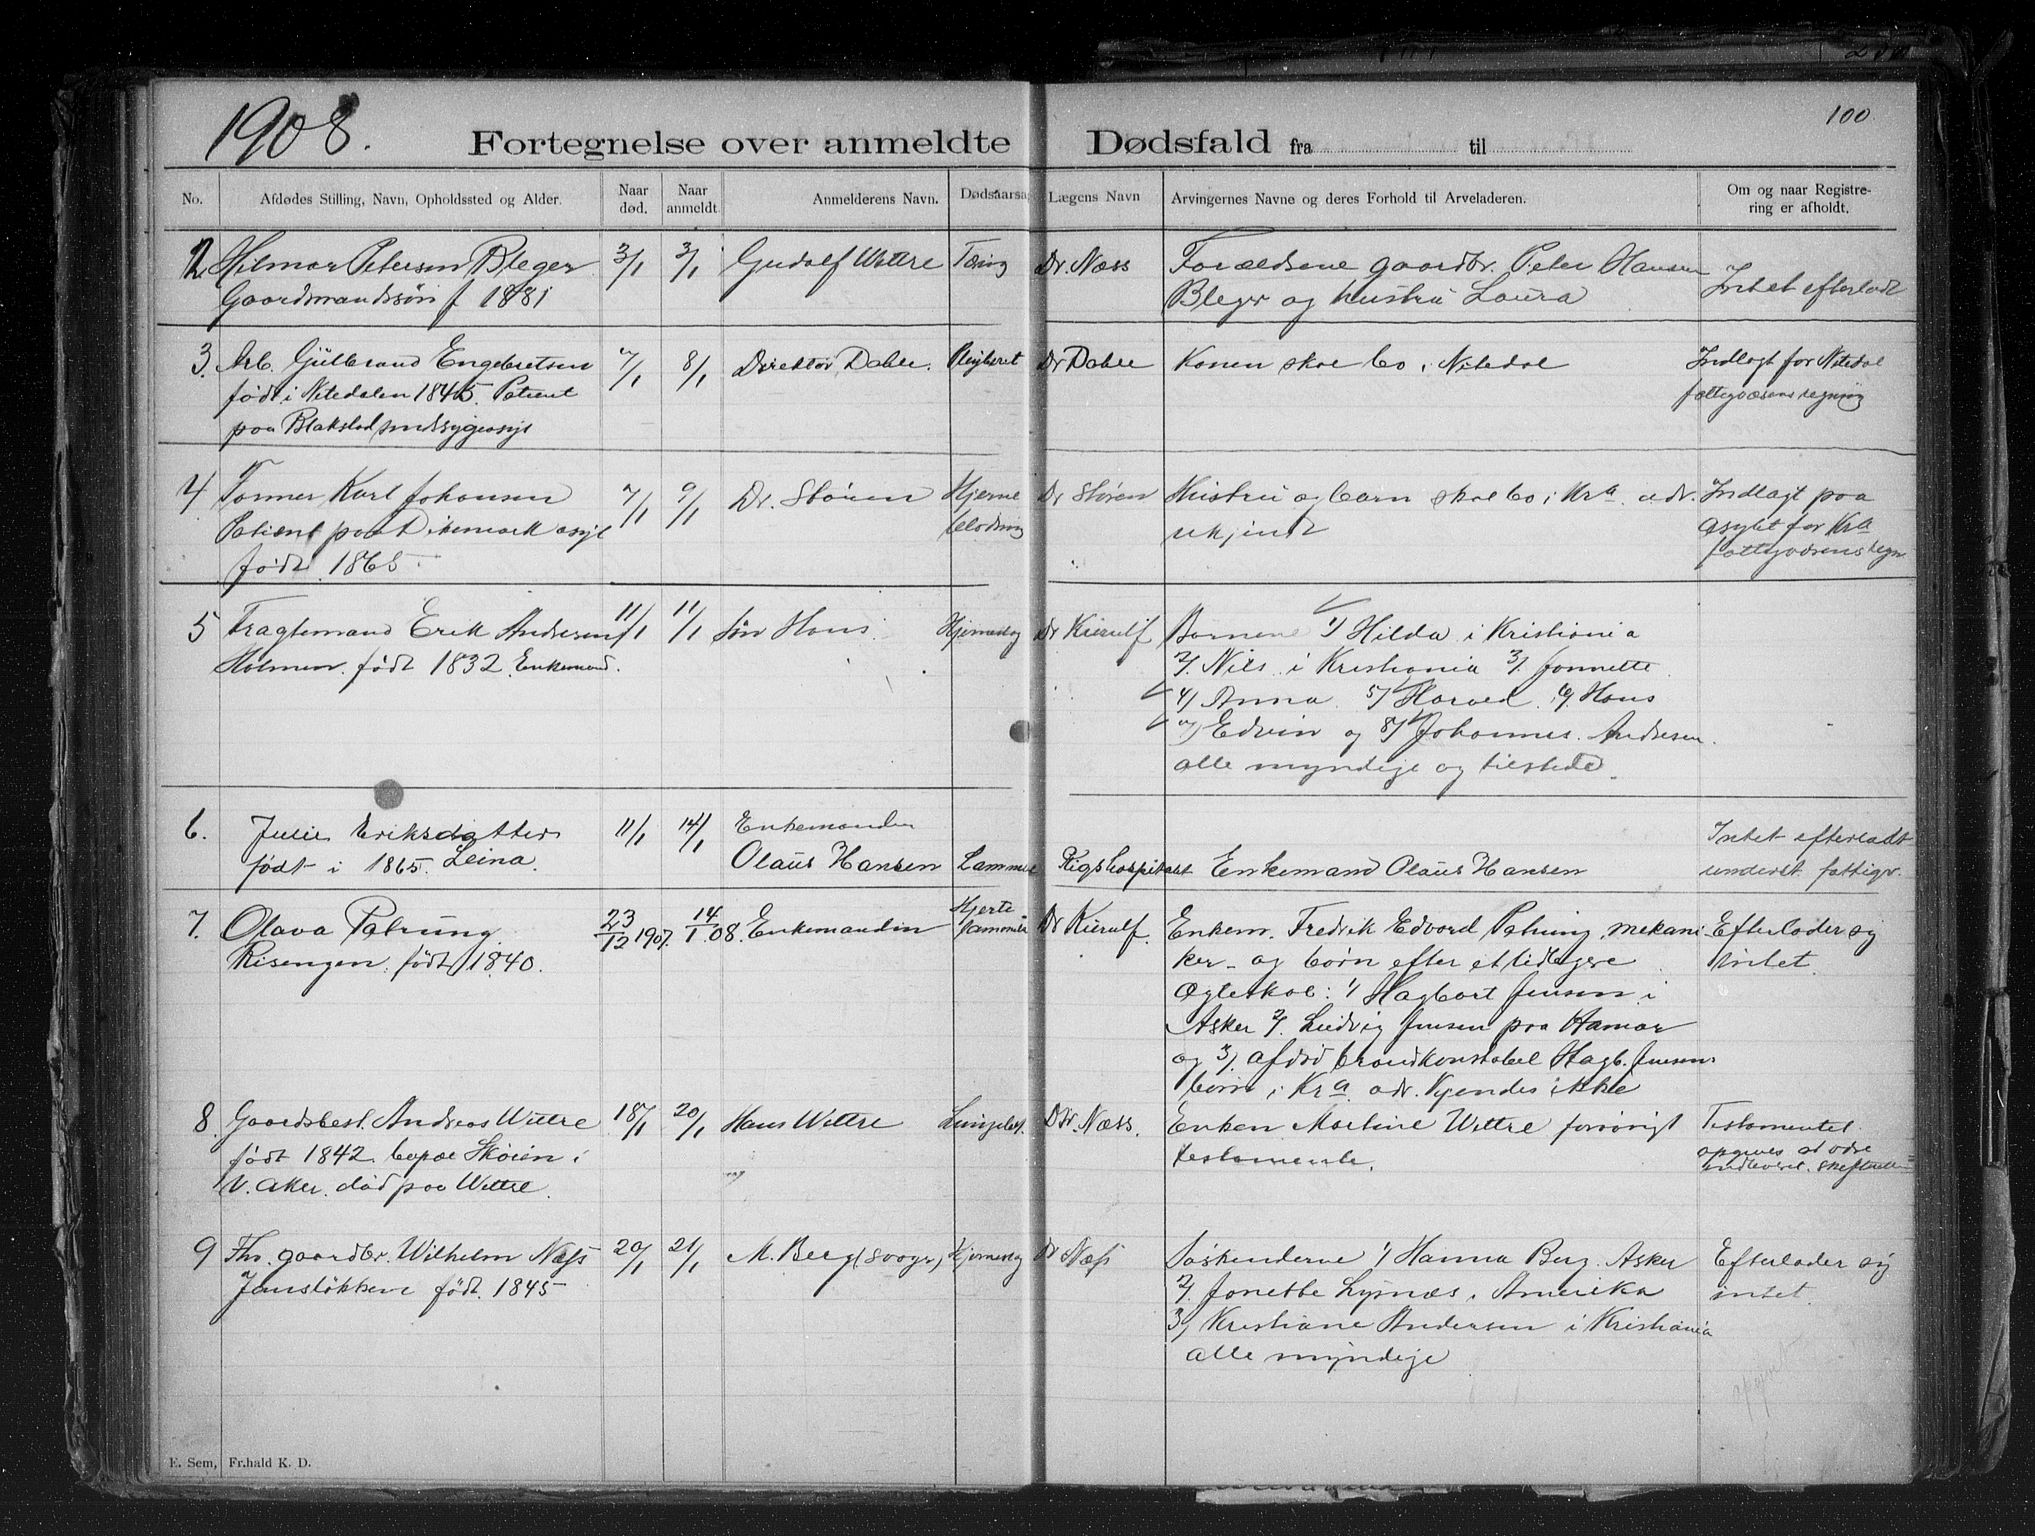 100
1908.
Fortegnelse over anmeldte Dødsfald fra til
No.
Afdødes Stilling, Navn, Opholdssted og Alder.
Naar død.
Naar anmeldt.
Anmelderens Navn.
Dødsaarsag
Lægens Navn
Arvingernes Navne og deres Forhold til Arveladeren.
Om og naar Registre-
ring er afholdt.
2 Hilmar Petersen Bleger 3/1 3/1 Gudolf Wettre Tæring Dr. Næss Forældrene gaardbr. Peter Hansen
Gaardmandssøn f 1881 Bleger og hustru Laura Intet efterladt
3. Arb. Gulbrand Engebretsen 7/1 8/1 Direktør Dahle. Dr Dahle Konen skal bo i Nitedal Indlagt for Nitedal
født i Nitedalen 1845. Patient fattigvæsens regning
paa Blakstad sindsygeasyl
4 Former Karl Johansen 7/1 9/1 Dr. Støren Hjerne Dr Støren Hustru og barn skal bo i Kra adr. Indlagt paa
Patient paa Dikemark asyl blødning ukjendt asylet for Kra
født 1865 fattigvæsens regn
5 Fragtemand Erik Andresen 11/1 11/1 søn Hans. Hjerneslag Dr Kierulf Børnene 1/ Hilda i Kristiania
Holmen. født 1832. Enkemand. 2/. Nils i Kristiania 3/. Jonnette
4/ Anna 5/ Harald. 6/. Hans
7/ Edvin og 8/ Johannes. Andresen.
alle myndige og tilstede.
6. Julie Eriksdatter 11/1 14/1 Enkemanden Intet efterladt
født i 1865. Leina. Olaus Hansen Lammelse Rigshospitalet Enkemand Olaus Hansen underst. fattigv.
7. Olava Petrung. 23/12 1907. 14/1 08. Enkemanden Hjerte- Dr Kierulf. Enkem. Fredrik Edvard Petrung, mekani Efterlader sig
Risengen. født 1840. lammelse ker - og børn efter et tidligere intet.
Ægteskab: 1/ Hagbart Jensen i
Asker 2/. Ludvig Jensen paa Hamar
og 3/. afdød brandkonstabel Hagb. Jensens
børn i Kra adr. kjendes ikke
8. Gaardsbest. Andreas Wettre 18/1 20/1 Hans Wettre Lungebet. Dr. Næss. Enken Martine Wettre forøvrigt Testamentet
født 1842. bopæl Skøien i testamente. opgives at være
V. Aker. død paa Wettre. indleveret. Skifteretten
9 Fhv. gaardbr. Wilhelm Næss 20/1 21/1 M. Berg (svoger) Hjerneslag Dr Næss Søskenderne 1/ Hanna Berg. Asker Efterlader sig
Jensløkken født. 1845 2/. Jonette Lysnæs i Amerika intet.
3/ Kristiane Andersen i Kristiania
alle myndige
E. Sem, Fr.hald K. D.